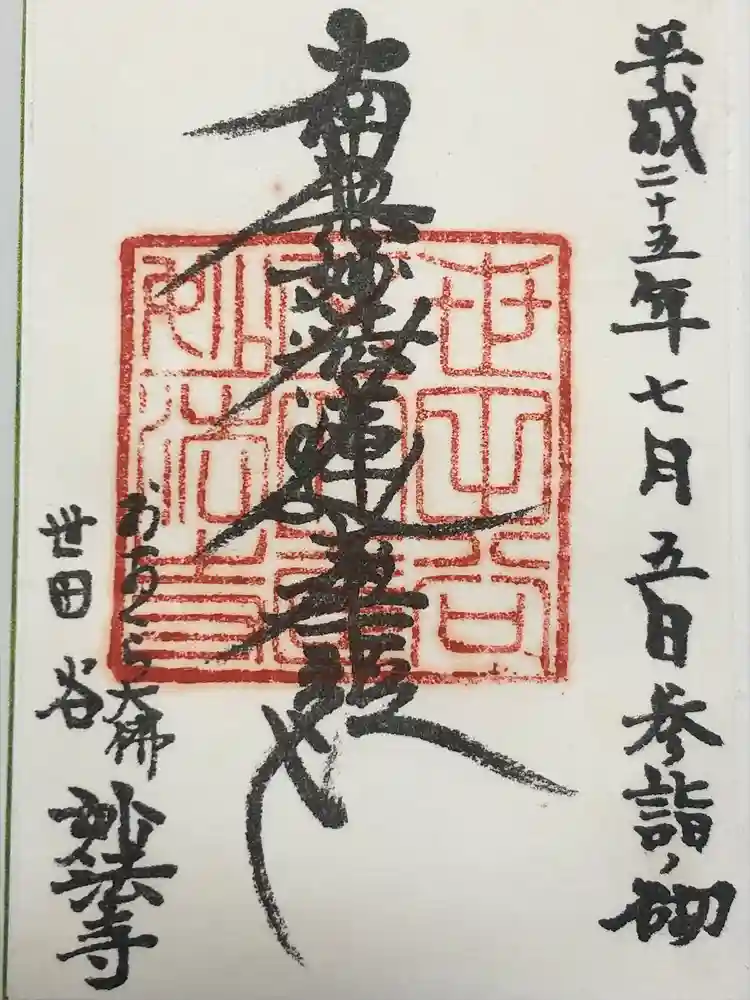 平成二十五年七月五日参詣ノ砌
南無妙法蓮華経
おおくら大佛
世田谷
妙法寺